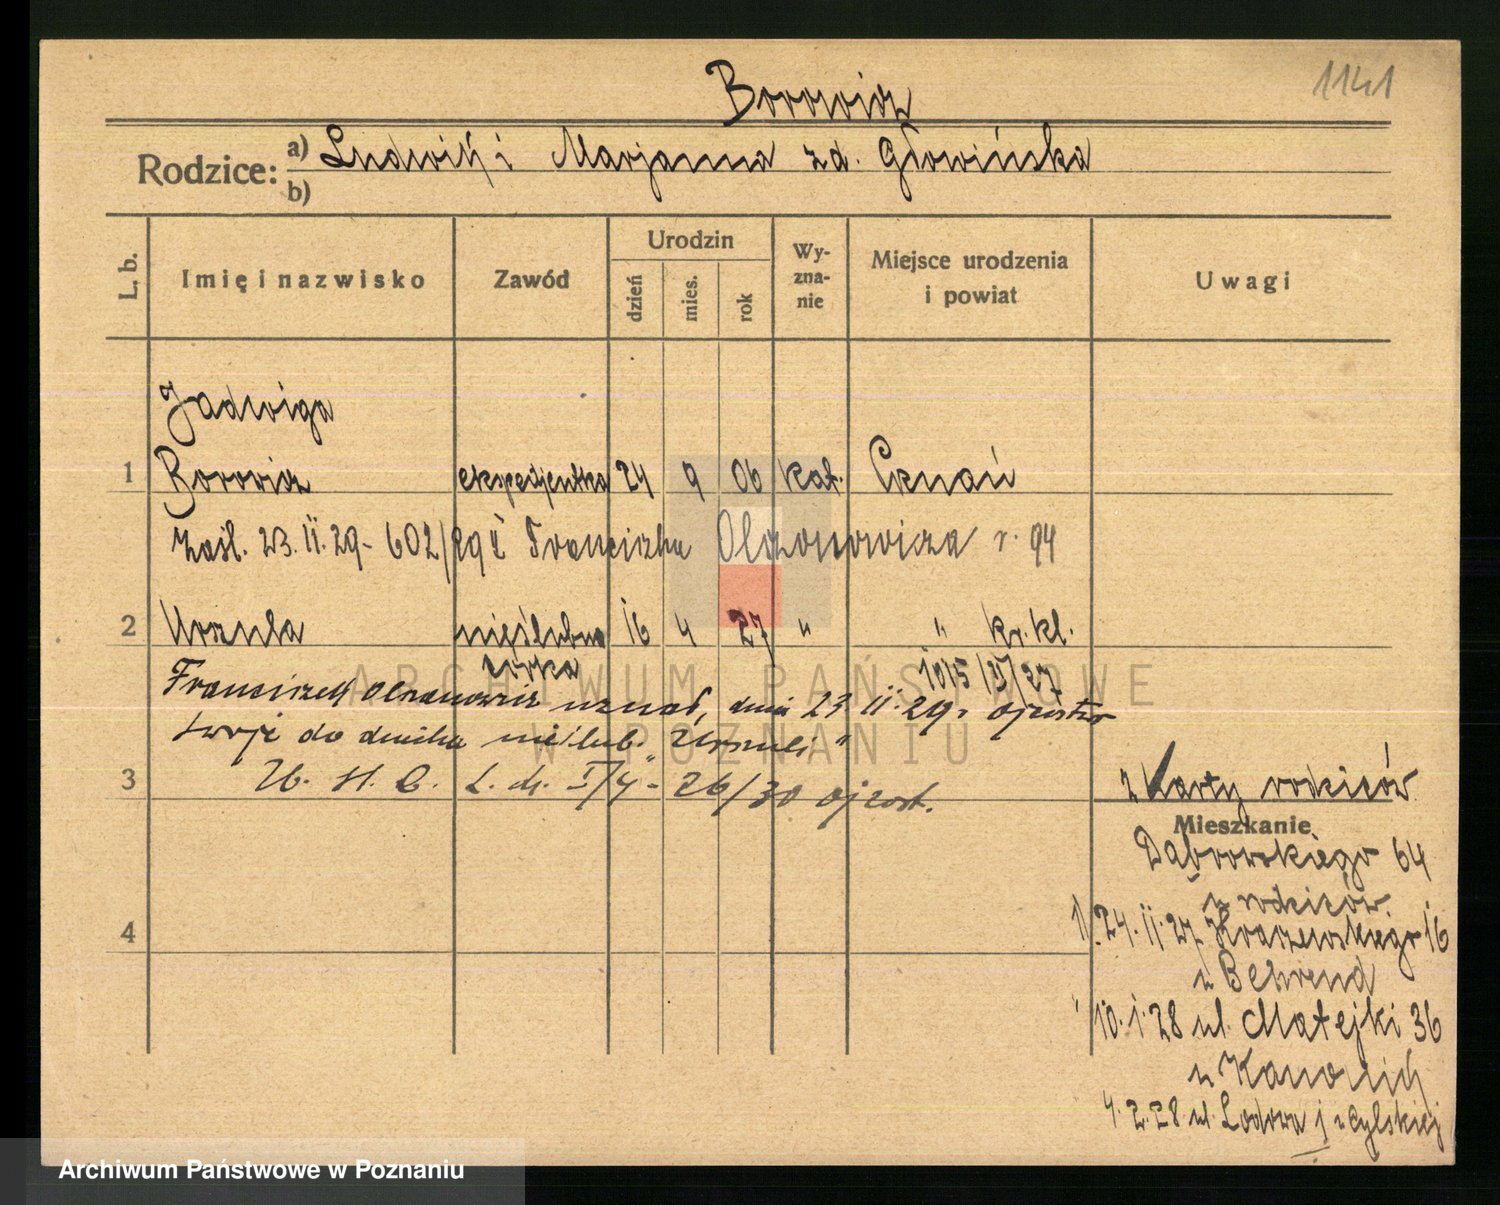 1141
Borowicz
Rodzice: a) Ludwik i Marjanna zd. Głowińska
b)
L. b. Imię i nazwisko Zawód Urodzin dzień mies. rok Wyznanie Miejsce urodzenia i powiat Uwagi
Jadwiga
1 Borowicz ekspedjentka 24 9 06 kat. Poznań
zaśl. 23.II.29 - 602/29 Franciszka r. 94
2 Urszula nieślubna 16 4 27 " " kr. kl.
córka
Franciszek uznał, dnia 23 II. 29 r. ojcostwo
swoje do dziecka nieślub. "Urszuli"
3 26/30 ojcost.
z Karty rodziców
Mieszkanie
Dąbrowskiego 64
u rodziców.
24.II.27 Kraszewskiego 16
u Behrend
10.1.28 ul. Matejki 36
u
4.2.28 ul.
4
ARCHIWUM PAŃSTWOWE
W POZNANIU
Archiwum Państwowe w Poznaniu